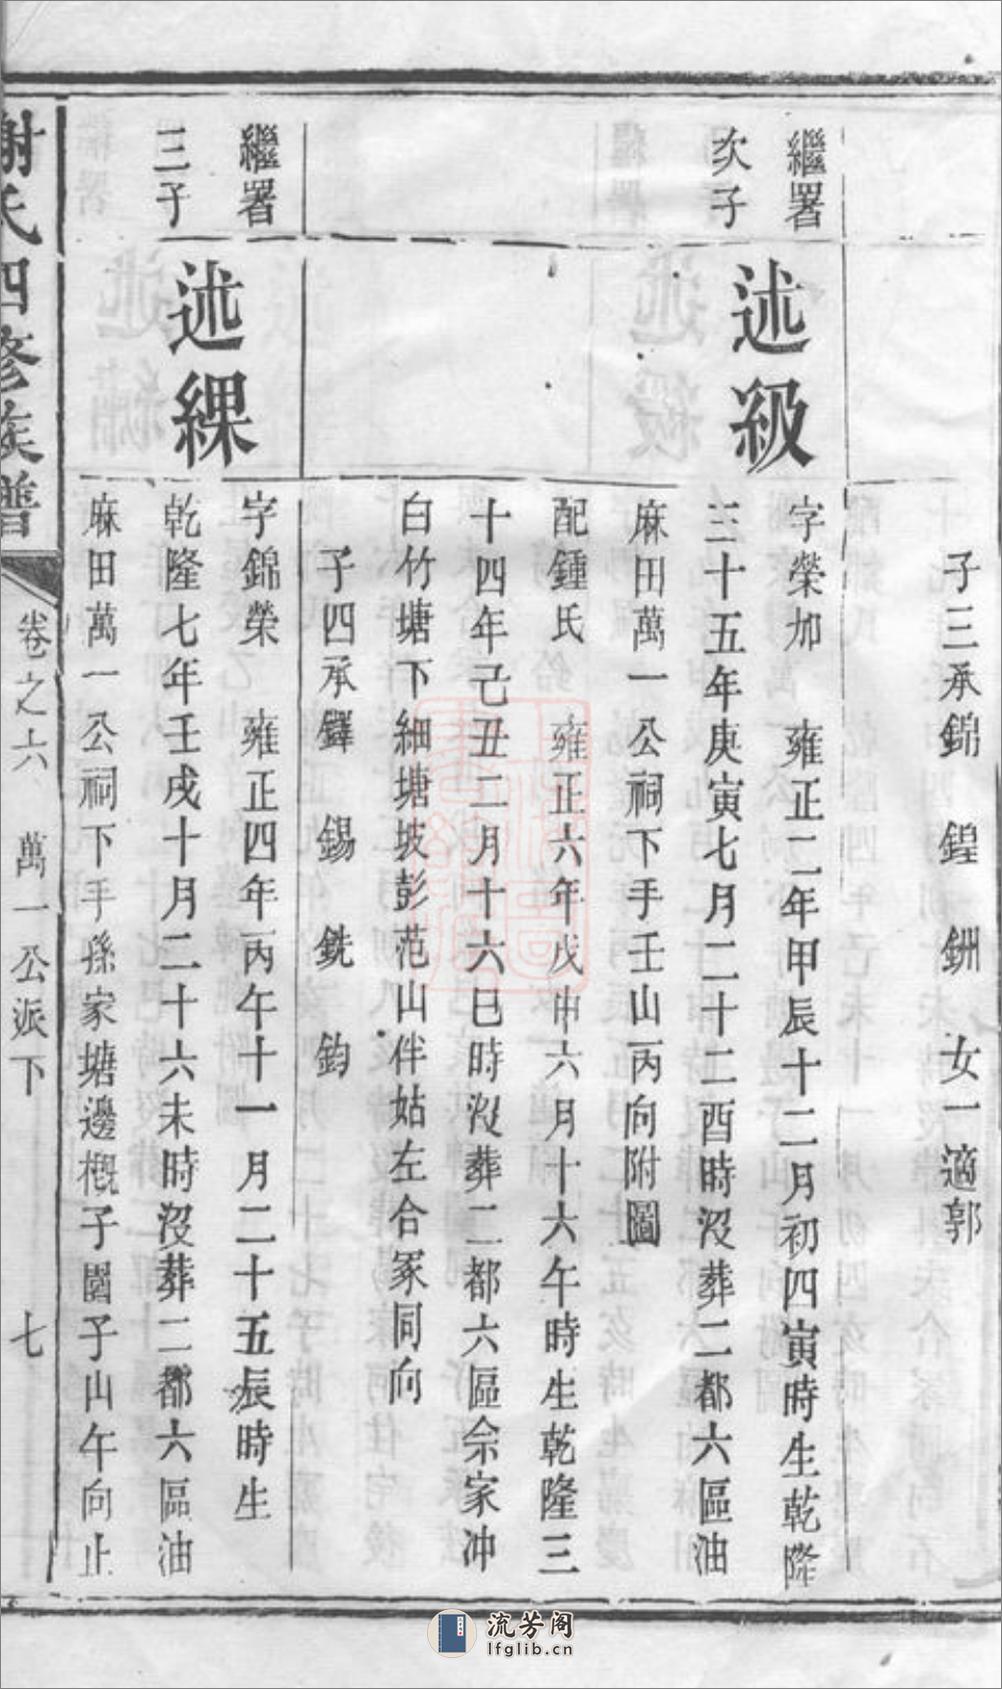 子三承錦　鍠　銂　女一適郭
繼署
次子
述級
字榮加　雍正二年甲辰十二月初四寅時生乾隆
三十五年庚寅七月二十二酉時沒葬二都六區油
麻田萬一公祠下手壬山丙向附圖
配鍾氏　雍正六年戊申六月十六午時生乾隆三
十四年己丑二月十六巳時沒葬二都六區佘家冲
白竹塘下細塘坡彭范山伴姑左合冢同向
子四承鐸　錫　銑　鈞
繼署
三子
述綶
字錦榮　雍正四年丙午十一月二十五辰時生
乾隆七年壬戌十月二十六未時沒葬二都六區油
麻田萬一公祠下手孫家塘邊概子園子山午向止
謝氏四修族譜
卷之六　萬一公派下
七
流芳阁
lfglib.cn